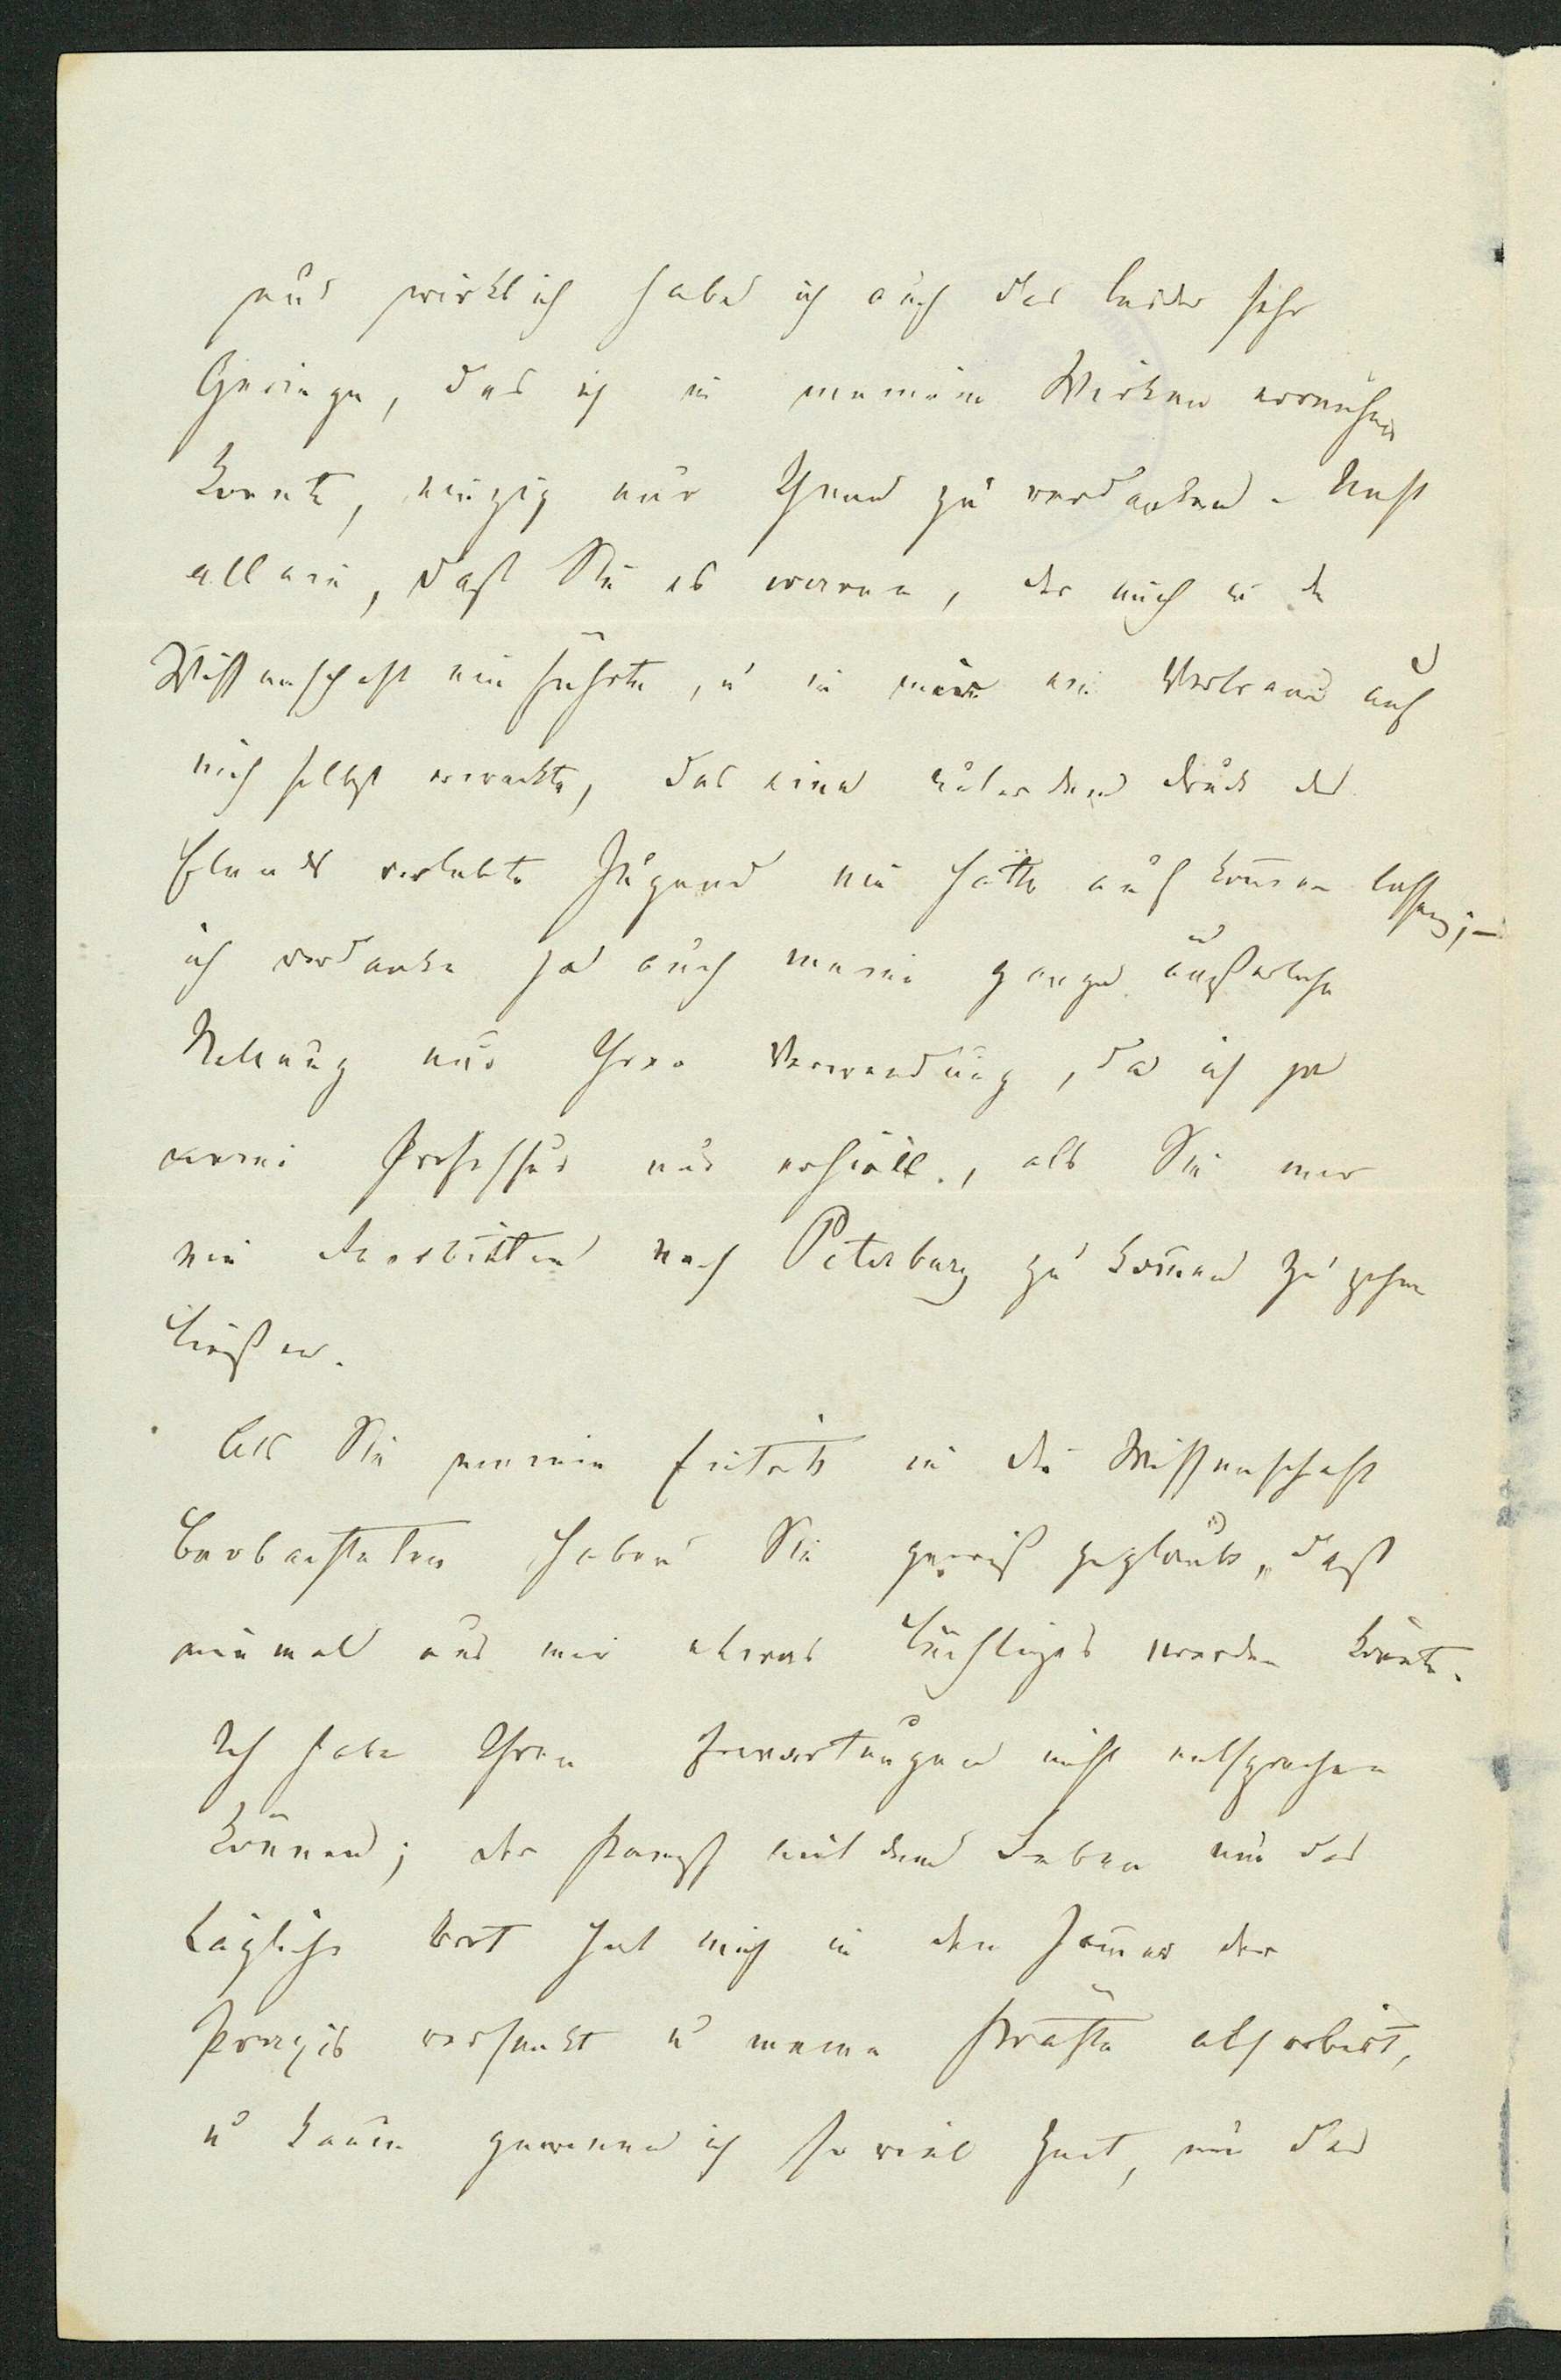 und wirklich habe ich auch das leider sehr
Geringe, das ich in meinem Wirken erreichen
konnte, einzig nur Ihnen zu verdanken. Nicht
allein, daß Sie es waren, der mich in die
Wissenschaft einführte, u in mir ein Vertrauen auf
mich selbst erweckte, das eine unter dem Druck des
Elends verlebte Jugend nie hätte aufkommen lassen; –
ich verdanke ja auch meine ganze äußerliche
Stellung nur Ihrer Verwendung, da ich ja
meine Professur nur erhielt, als Sie mir
ein Anerbieten nach Petersburg zu kommen zugehen
ließen.
Als Sie meinen Eintritt in die Wissenschaft
beobachteten haben Sie gewiß geglaubt, daß
einmal aus mir etwas Tüchtiges werden könnte.
Ich habe Ihren Erwartungen nicht entsprechen
können; der Kampf mit dem Leben um das
tägliche Brot hat mich in den Jammer der
Praxis versenkt u meine Kräfte absorbirt,
u kaum gewinne ich so viel Zeit, um das